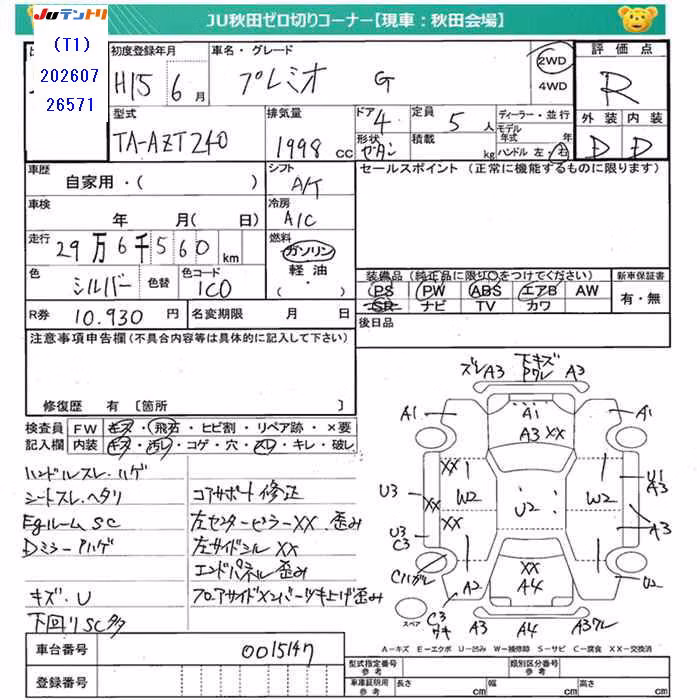 Juテントリ
JU秋田ゼロ切りコーナー【現車：秋田会場】
(T1)
202607
26571
初度登録年月
H15 6月
車名・グレード
プレミオ G
2WD
4WD
評価点
R
型式
TA-AZT240
排気量
1998 CC
ドア
4
形状
セダン
定員
5人
積載
kg
ディーラー・並行
モデル年式 年
ハンドル 左・右
外装 内装
D D
車歴
自家用・( )
シフト
A/T
セールスポイント (正常に機能するものに限ります)
車検
年 月(日)
冷房
A/C
走行
29万6千560km
燃料
ガソリン
軽油
( ・ )
色
シルバー
色替
色コード
1C0
装備品 (純正品に限り○をつけてください)
PS PW ABS エアB AW
SR ナビ TV カワ
新車保証書
有・無
R券 10.930 円
名変期限 月 日
後日品
注意事項申告欄 (不具合内容等は具体的に記入して下さい)
修復歴 有 〔箇所 〕
検査員記入欄
FW キズ・飛石・ヒビ割・リペア跡・×要
内装 キズ・汚レ・コゲ・穴・スレ・キレ・破レ
ハンドルスレ.ハゲ
シートスレ.ヘタリ
Egルームsc
Dミラーアハゲ
キズ．U
下回りSC多
コアサポート修正
左センターピラーXX．歪み
左サイドシルXX
エンドパネル歪み
フロアサイドメンバーツキ上げ歪み
ズレA3
下キズ
ワレ
A3
A1
A1
A1
A3 XX
XX
U3
XX
W2
XX
U2
W2
U1
A3
A3
U3
C3
Cハガレ
A2
XX
A4
U2
スペア
C3
ワキ
A3
A4
A3ワレ
A-キズ E-エクボ U-凹み W-補修跡 S-サビ C-腐食 XX-交換済
車台番号 0015147
登録番号
型式指定番号
参考
類別区分番号
参考
車庫証明用
参考
長さ cm
幅 cm
高さ cm